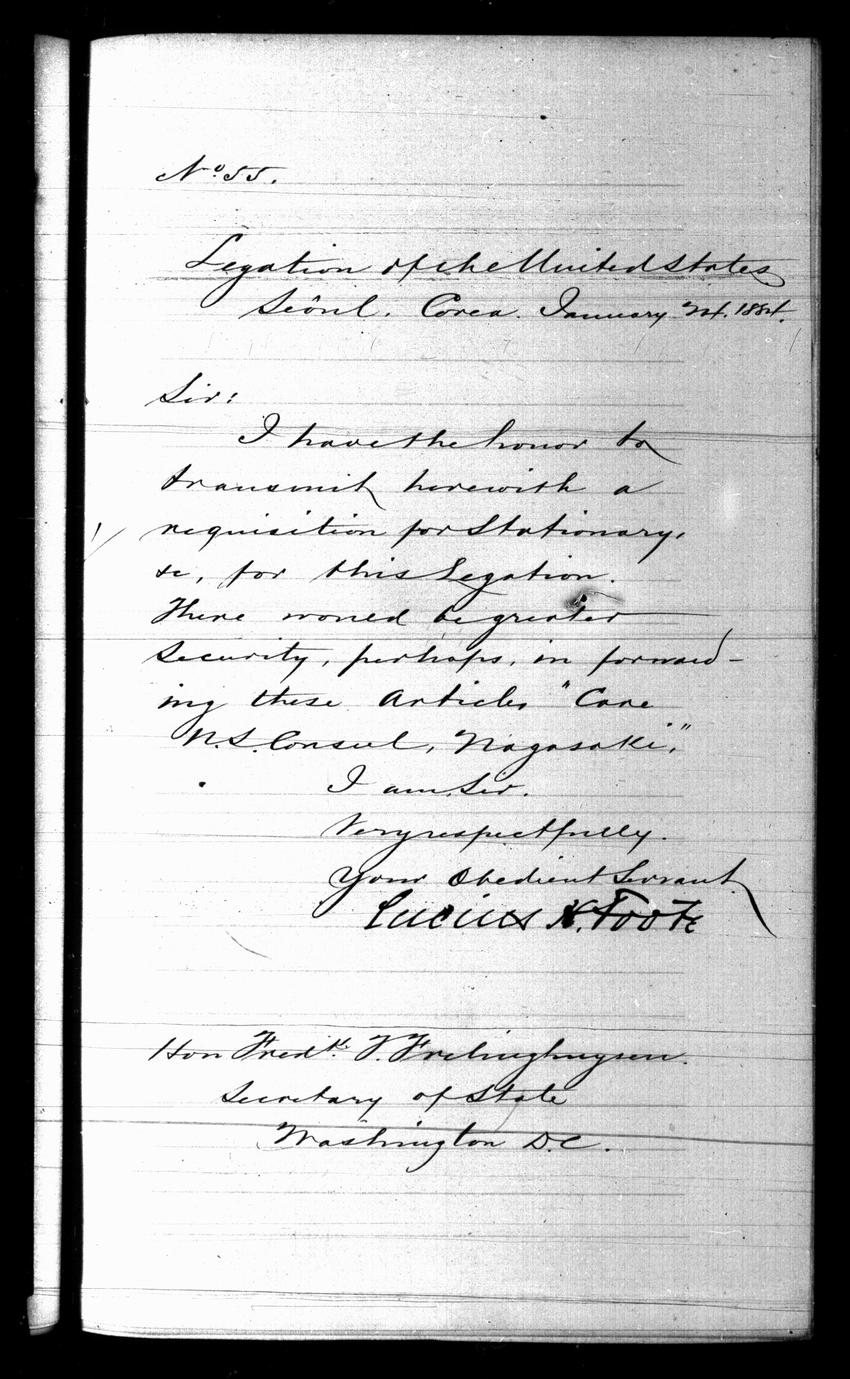 No. 55.
Legation of the United States
Seôul. Corea. January 24. 1884.
Sir:
I have the honor to
transmit herewith a
requisition for Stationary,
&c, for this Legation.
There would be greater
security, perhaps, in forward-
ing these Articles "Care
U.S. Consul, Nagasaki,"
I am, Sir.
Very respectfully.
Your Obedient Servant
Lucius H. Foote
Hon Fredk. T. Frelinghuysen.
Secretary of State
Washington D.C.